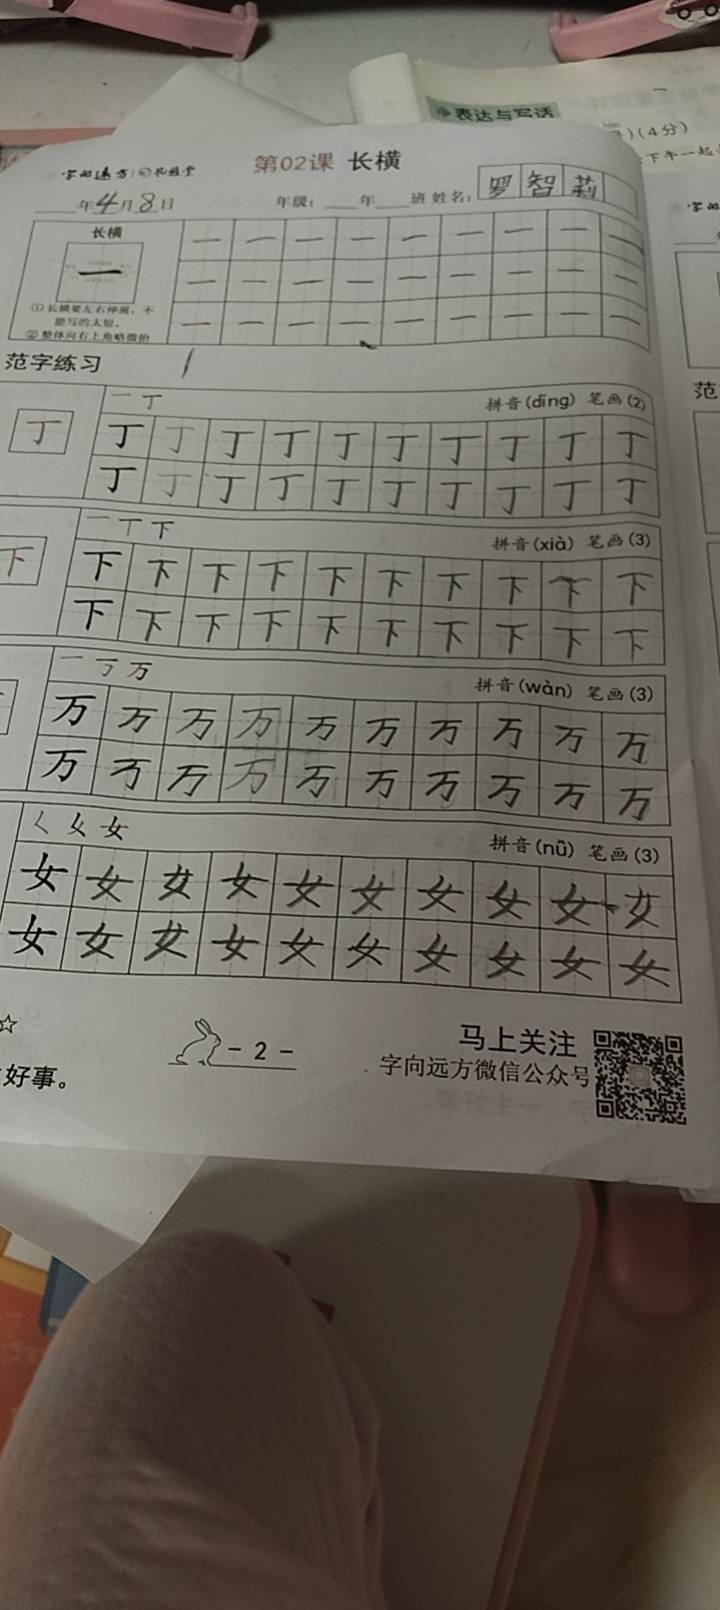 表达与写话
)(4分)
下午一起
第02课 长横
年4月8日 年级: 年 班 姓名: 罗智莉
长横
一 一 一 一 一 一 一 一 一 一
一 一 一 一 一 一 一 一 一
①长横要左右伸展,不能写的太短。
一 一 一 一 一 一 一 一 一
②整体向右上角略微抬
范字练习
范
一 丁 拼音(dīng) 笔画(2)
丁 丁 丁 丁 丁 丁 丁 丁 丁 丁 丁
丁 丁 丁 丁 丁 丁 丁 丁 丁 丁
一 丅 下 拼音(xià) 笔画(3)
下 下 下 下 下 下 下 下 下 下 下
下 下 下 下 下 下 下 下 下 下
一 丂 万 拼音(wàn) 笔画(3)
万 万 万 万 万 万 万 万 万 万
万 万 万 万 万 万 万 万 万 万
く 女 女 拼音(nǚ) 笔画(3)
女 女 女 女 女 女 女 女 女 女
女 女 女 女 女 女 女 女 女 女
- 2 -
马上关注
字向远方微信公众号
好事。